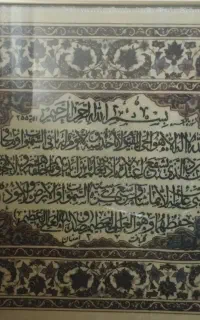 بسم الله الرحمن الرحيم
الله لا اله الا هو الحي القيوم لا تأخذه سنة ولا نوم له ما في السموات وما في
ذا الذي يشفع عنده الا باذنه يعلم ما بين ايديهم وما خلفهم ولا
من علمه الا بما شاء وسع كرسيه السموات والارض ولا يؤده
حفظهما وهو العلي العظيم صدق الله العلي العظيم